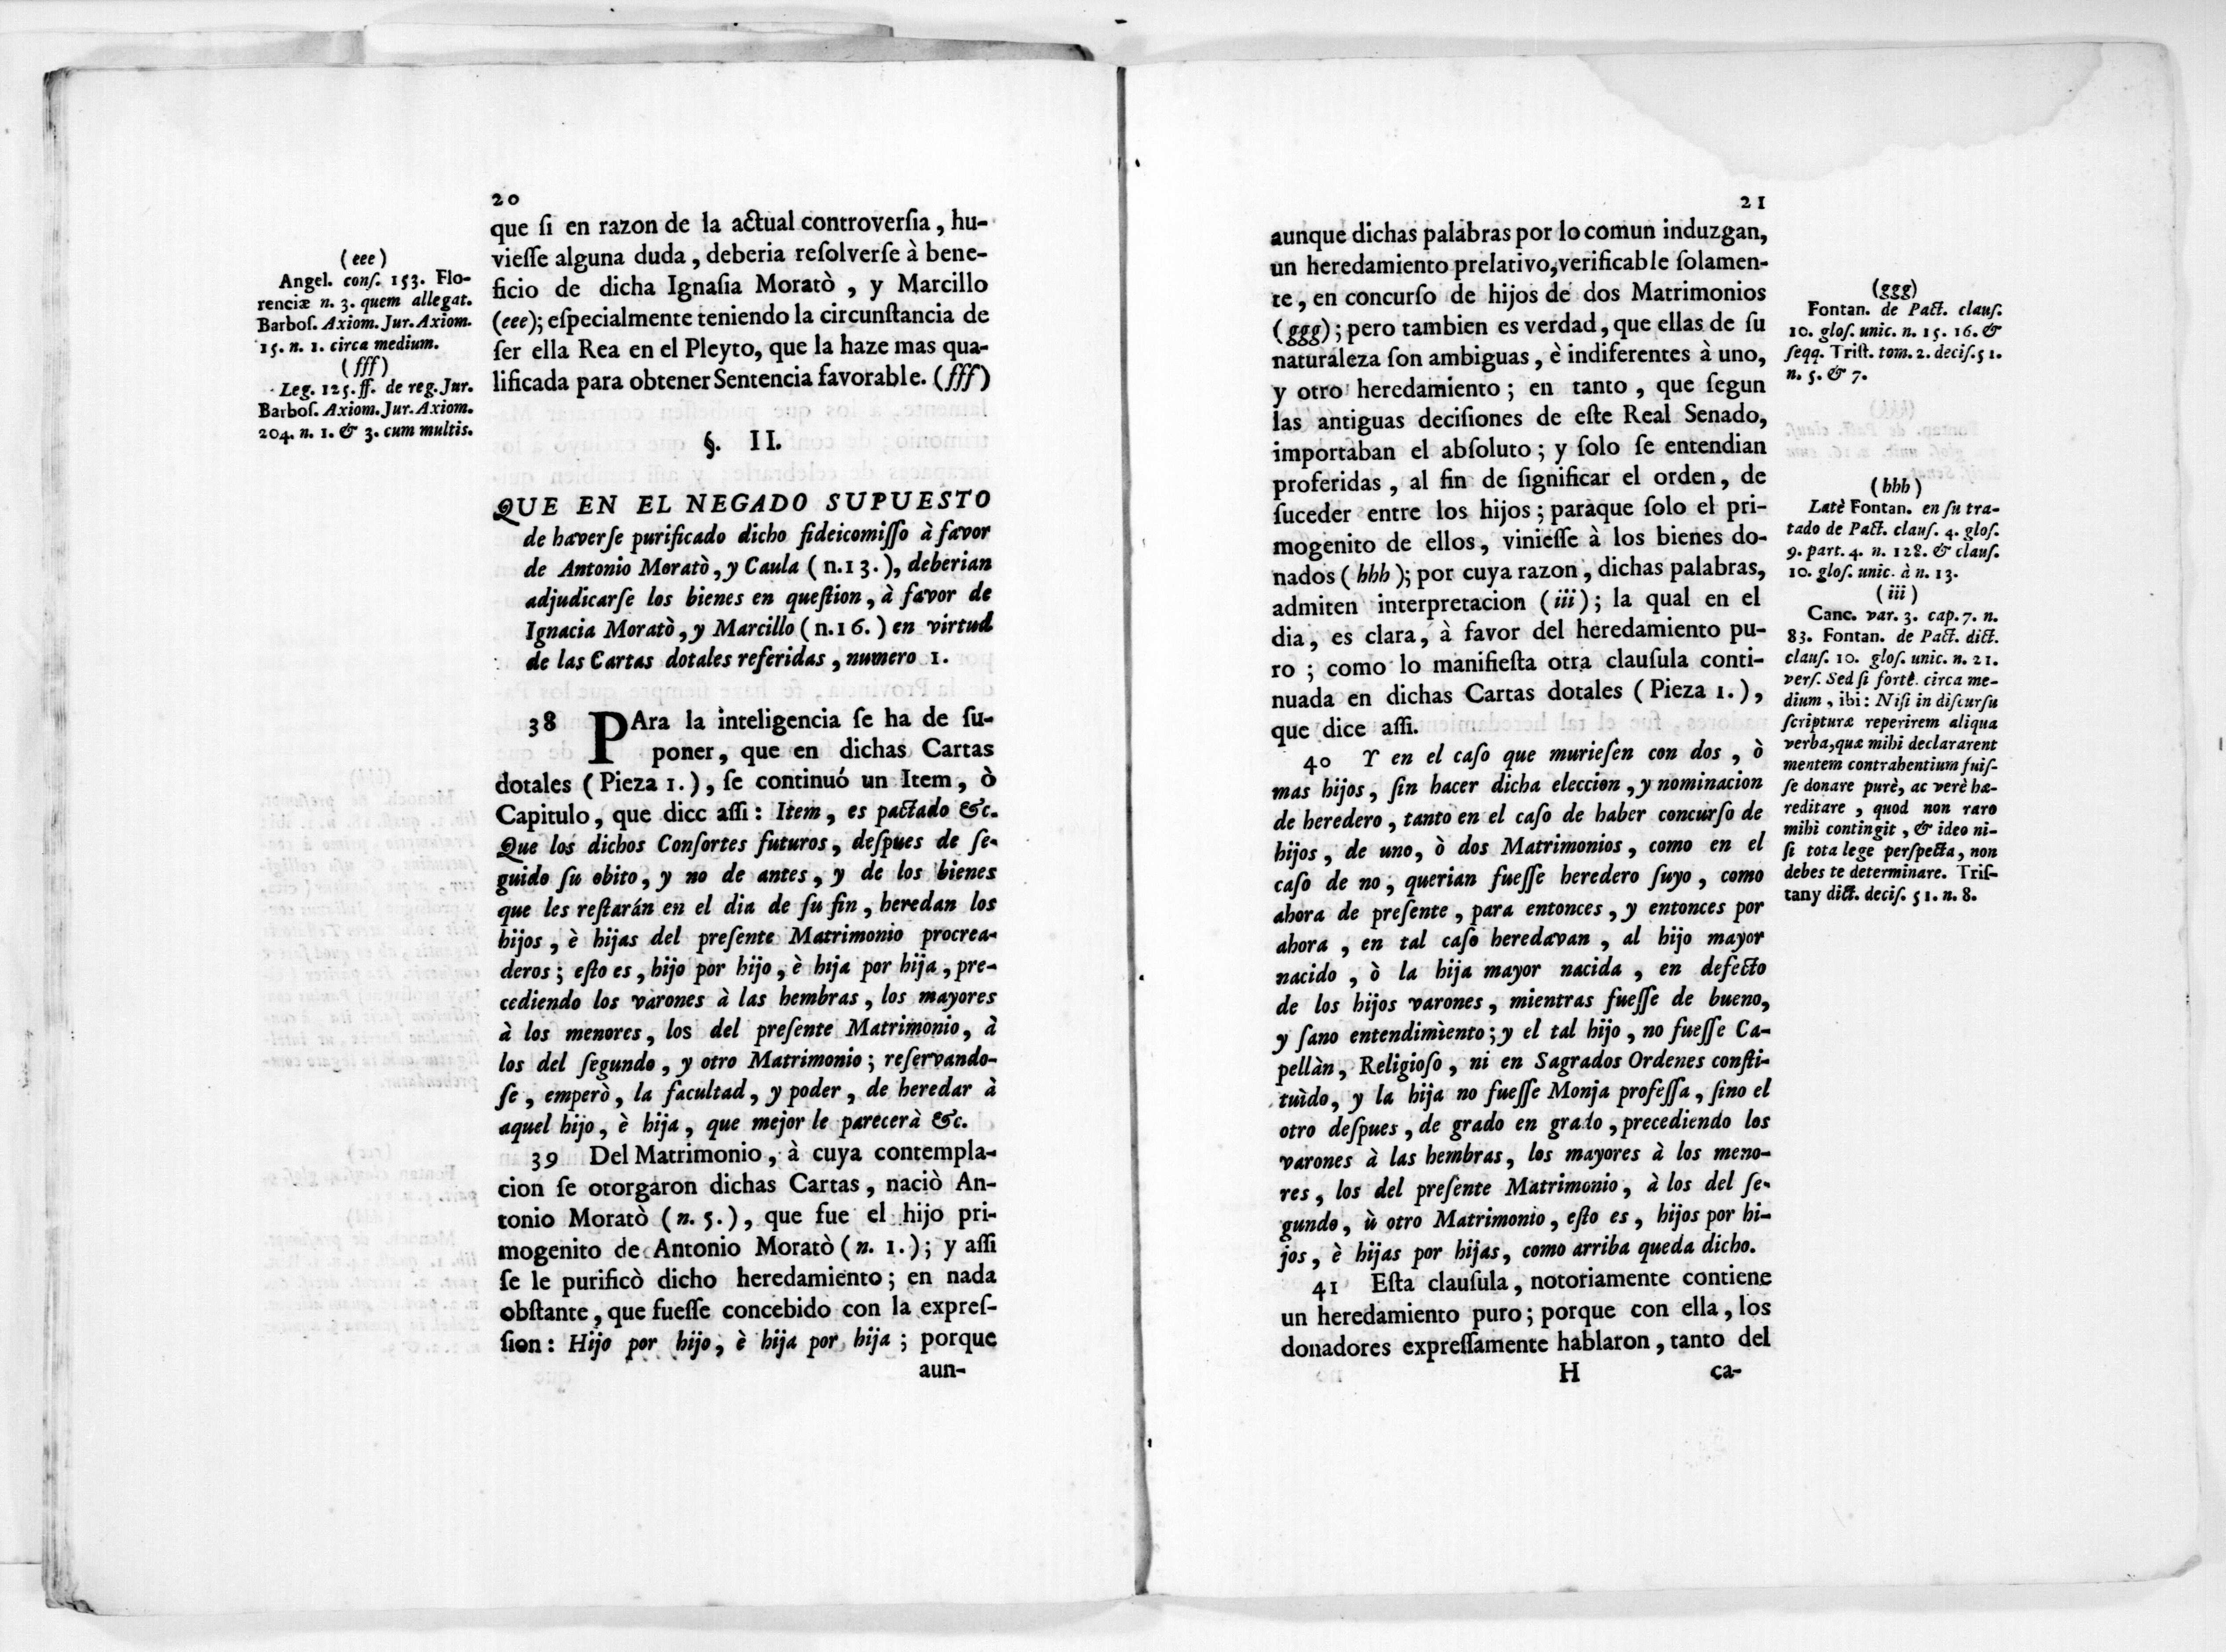 20
que ſi en razon de la actual controverſia, hu-
vieſſe alguna duda, deberia reſolverſe à bene-
ficio de dicha Ignaſia Moratò, y Marcillo
(eee); eſpecialmente teniendo la circunſtancia de
ſer ella Rea en el Pleyto, que la haze mas qua-
lificada para obtener Sentencia favorable. (fff)
(eee)
Angel. conſ. 153. Flo-
renciæ n. 3. quem allegat.
Barboſ. Axiom. Jur. Axiom.
15. n. 1. circa medium.
(fff)
Leg. 125. ff. de reg. Jur.
Barboſ. Axiom. Jur. Axiom.
204. n. 1. & 3. cum multis.
§. II.
QUE EN EL NEGADO SUPUESTO
de haverſe purificado dicho fideicomiſſo à favor
de Antonio Moratò, y Caula (n.13.), deberian
adjudicarſe los bienes en queſtion, à favor de
Ignacia Moratò, y Marcillo (n.16.) en virtud
de las Cartas dotales referidas, numero 1.
38 PAra la inteligencia ſe ha de ſu-
poner, que en dichas Cartas
dotales (Pieza 1.), ſe continuó un Item, ò
Capitulo, que dice aſſi: Item, es pactado &c.
Que los dichos Conſortes futuros, deſpues de ſe-
guido ſu obito, y no de antes, y de los bienes
que les reſtarán en el dia de ſu fin, heredan los
hijos, è hijas del preſente Matrimonio procrea-
deros; eſto es, hijo por hijo, è hija por hija, pre-
cediendo los varones à las hembras, los mayores
à los menores, los del preſente Matrimonio, à
los del ſegundo, y otro Matrimonio; reſervando-
ſe, emperò, la facultad, y poder, de heredar à
aquel hijo, è hija, que mejor le parecerà &c.
39 Del Matrimonio, à cuya contempla-
cion ſe otorgaron dichas Cartas, naciò An-
tonio Moratò (n. 5.), que fue el hijo pri-
mogenito de Antonio Moratò (n. 1.); y aſſi
ſe le purificò dicho heredamiento; en nada
obſtante, que fueſſe concebido con la expreſ-
ſion: Hijo por hijo, è hija por hija; porque
aun-
21
aunque dichas palabras por lo comun induzgan,
un heredamiento prelativo, verificable ſolamen-
te, en concurſo de hijos de dos Matrimonios
(ggg); pero tambien es verdad, que ellas de ſu
naturaleza ſon ambiguas, è indiferentes à uno,
y otro heredamiento; en tanto, que ſegun
las antiguas deciſiones de eſte Real Senado,
importaban el abſoluto; y ſolo ſe entendian
proferidas, al fin de ſignificar el orden, de
ſuceder entre los hijos; paraque ſolo el pri-
mogenito de ellos, vinieſſe à los bienes do-
nados (hhh); por cuya razon, dichas palabras,
admiten interpretacion (iii); la qual en el
dia, es clara, à favor del heredamiento pu-
ro; como lo manifieſta otra clauſula conti-
nuada en dichas Cartas dotales (Pieza 1.),
que dice aſſi.
40 Y en el caſo que murieſen con dos, ò
mas hijos, ſin hacer dicha eleccion, y nominacion
de heredero, tanto en el caſo de haber concurſo de
hijos, de uno, ò dos Matrimonios, como en el
caſo de no, querian fueſſe heredero ſuyo, como
ahora de preſente, para entonces, y entonces por
ahora, en tal caſo heredavan, al hijo mayor
nacido, ò la hija mayor nacida, en defecto
de los hijos varones, mientras fueſſe de bueno,
y ſano entendimiento; y el tal hijo, no fueſſe Ca-
pellàn, Religioſo, ni en Sagrados Ordenes conſti-
tuìdo, y la hija no fueſſe Monja profeſſa, ſino el
otro deſpues, de grado en grado, precediendo los
varones à las hembras, los mayores à los meno-
res, los del preſente Matrimonio, à los del ſe-
gundo, ù otro Matrimonio, eſto es, hijos por hi-
jos, è hijas por hijas, como arriba queda dicho.
41 Eſta clauſula, notoriamente contiene
un heredamiento puro; porque con ella, los
donadores expreſſamente hablaron, tanto del
H ca-
(ggg)
Fontan. de Pact. clauſ.
10. gloſ. unic. n. 15. 16. &
ſeqq. Triſt. tom. 2. deciſ. 51.
n. 5. & 7.
(hhh)
Latè Fontan. en ſu tra-
tado de Pact. clauſ. 4. gloſ.
9. part. 4. n. 128. & clauſ.
10. gloſ. unic. à n. 13.
(iii)
Canc. var. 3. cap. 7. n.
83. Fontan. de Pact. dict.
clauſ. 10. gloſ. unic. n. 21.
verſ. Sed ſi fortè. circa me-
dium, ibi: Niſi in diſcurſu
ſcripturæ reperirem aliqua
verba, quæ mihi declararent
mentem contrahentium fuiſ-
ſe donare purè, ac verè hæ-
reditare, quod non raro
mihi contingit, & ideo ni-
ſi tota lege perſpecta, non
debes te determinare. Triſ-
tany dict. deciſ. 51. n. 8.